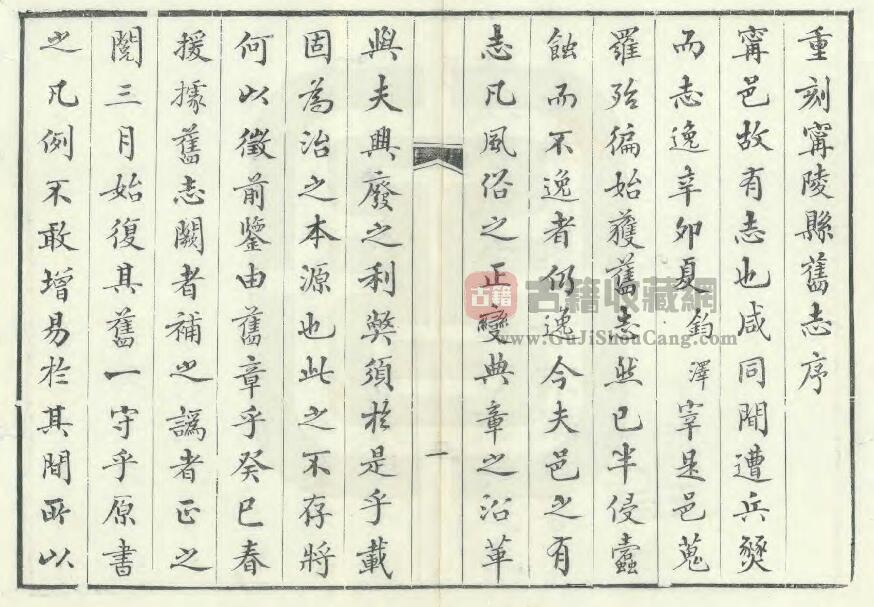 重刻甯陵縣舊志序
甯邑故有志也咸同間遭兵燹
而志逸辛卯夏鈞澤宰是邑蒐
羅殆徧始獲舊志然已半侵蠧
蝕而不逸者仍逸今夫邑之有
志凡風俗之正變典章之沿革
一
與夫興廢之利獘須於是乎載
固為治之本源也此之不存將
何以徵前鑒由舊章乎癸巳春
援據舊志闕者補之譌者正之
閱三月始復其舊一守乎原書
之凡例不敢增易於其間所以
古籍
古籍收藏網
www.GuJiShouCang.com